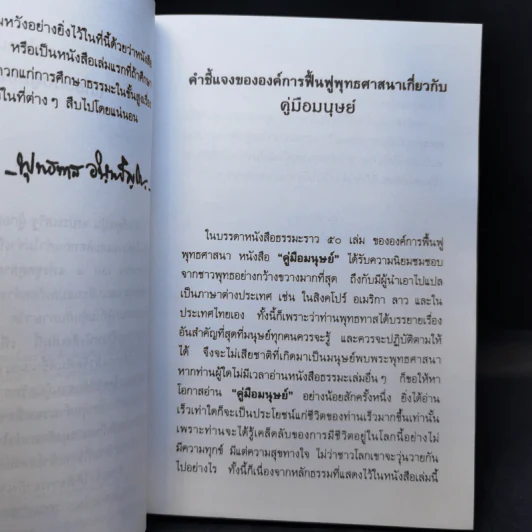 หวังอย่างยิ่งไว้ในที่นี้ด้วยว่าหนังสือ
หรือเป็นหนังสือเล่มแรกที่ถ้าศึกษา
วกแก่การศึกษาธรรมะในชั้นสูงเรื่อง
ในที่ต่างๆ สืบไปโดยแน่นอน
พุทธทาส อินทปัญโญ
คำชี้แจงขององค์การฟื้นฟูพุทธศาสนาเกี่ยวกับ
คู่มือมนุษย์
ในบรรดาหนังสือธรรมะราว ๕๐ เล่ม ขององค์การฟื้นฟู
พุทธศาสนา หนังสือ "คู่มือมนุษย์" ได้รับความนิยมชมชอบ
จากชาวพุทธอย่างกว้างขวางมากที่สุด ถึงกับมีผู้นำเอาไปแปล
เป็นภาษาต่างประเทศ เช่น ในสิงคโปร์ อเมริกา ลาว และใน
ประเทศไทยเอง ทั้งนี้ก็เพราะว่าท่านพุทธทาสได้บรรยายเรื่อง
อันสำคัญที่สุดที่มนุษย์ทุกคนควรจะรู้ และควรจะปฏิบัติตามให้
ได้ จึงจะไม่เสียชาติที่เกิดมาเป็นมนุษย์พบพระพุทธศาสนา
หากท่านผู้ใดไม่มีเวลาอ่านหนังสือธรรมะเล่มอื่นๆ ก็ขอให้หา
โอกาสอ่าน "คู่มือมนุษย์" อย่างน้อยสักครั้งหนึ่ง ยิ่งได้อ่าน
เร็วเท่าใดก็จะเป็นประโยชน์แก่ชีวิตของท่านเร็วมากขึ้นเท่านั้น
เพราะท่านจะได้รู้เคล็ดลับของการมีชีวิตอยู่ในโลกนี้อย่างไม่
มีความทุกข์ มีแต่ความสุขทางใจ ไม่ว่าชาวโลกเขาจะวุ่นวายกัน
ไปอย่างไร ทั้งนี้ก็เนื่องจากหลักธรรมที่แสดงไว้ในหนังสือเล่มนี้